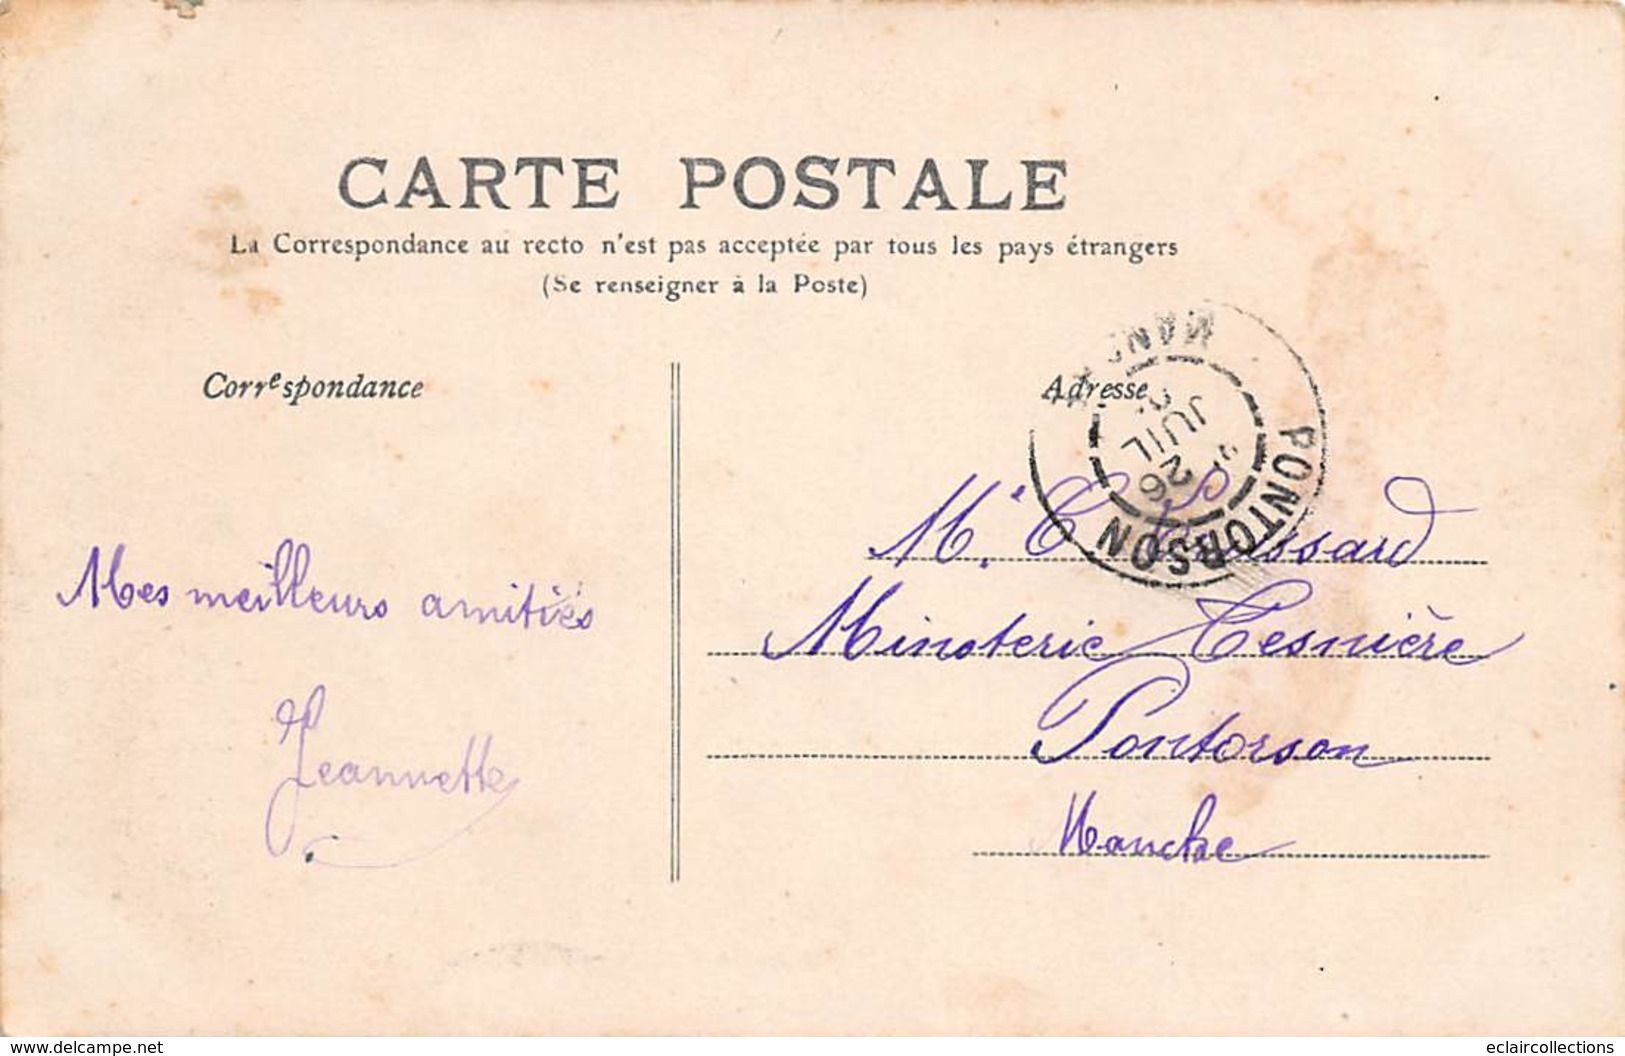 CARTE POSTALE
La Correspondance au recto n'est pas acceptée par tous les pays étrangers
(Se renseigner à la Poste)
Correspondance
Adresse
PONTORSON
JUIL
26
Mes meilleurs amitiés
Jeannette
Mr C
Minoterie Tesnière
Pontorson
Manche
www.delcampe.net
eclaircollections